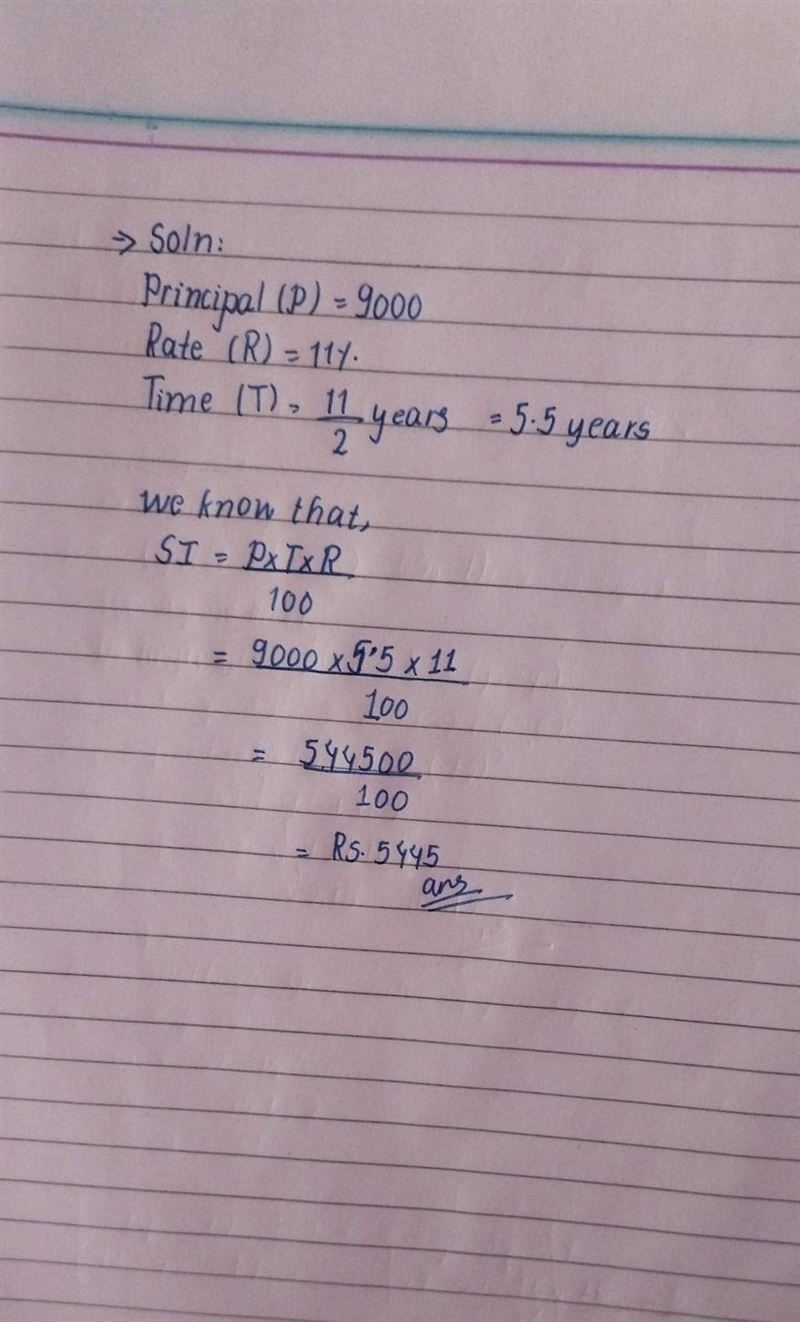 → Soln:
Principal (P) = 9000
Rate (R) = 11%.
Time (T) = 11/2 years = 5.5 years
we know that,
SI = PxTxR
100
= 9000 x 5.5 x 11
100
= 544500
100
= Rs. 5445
ans